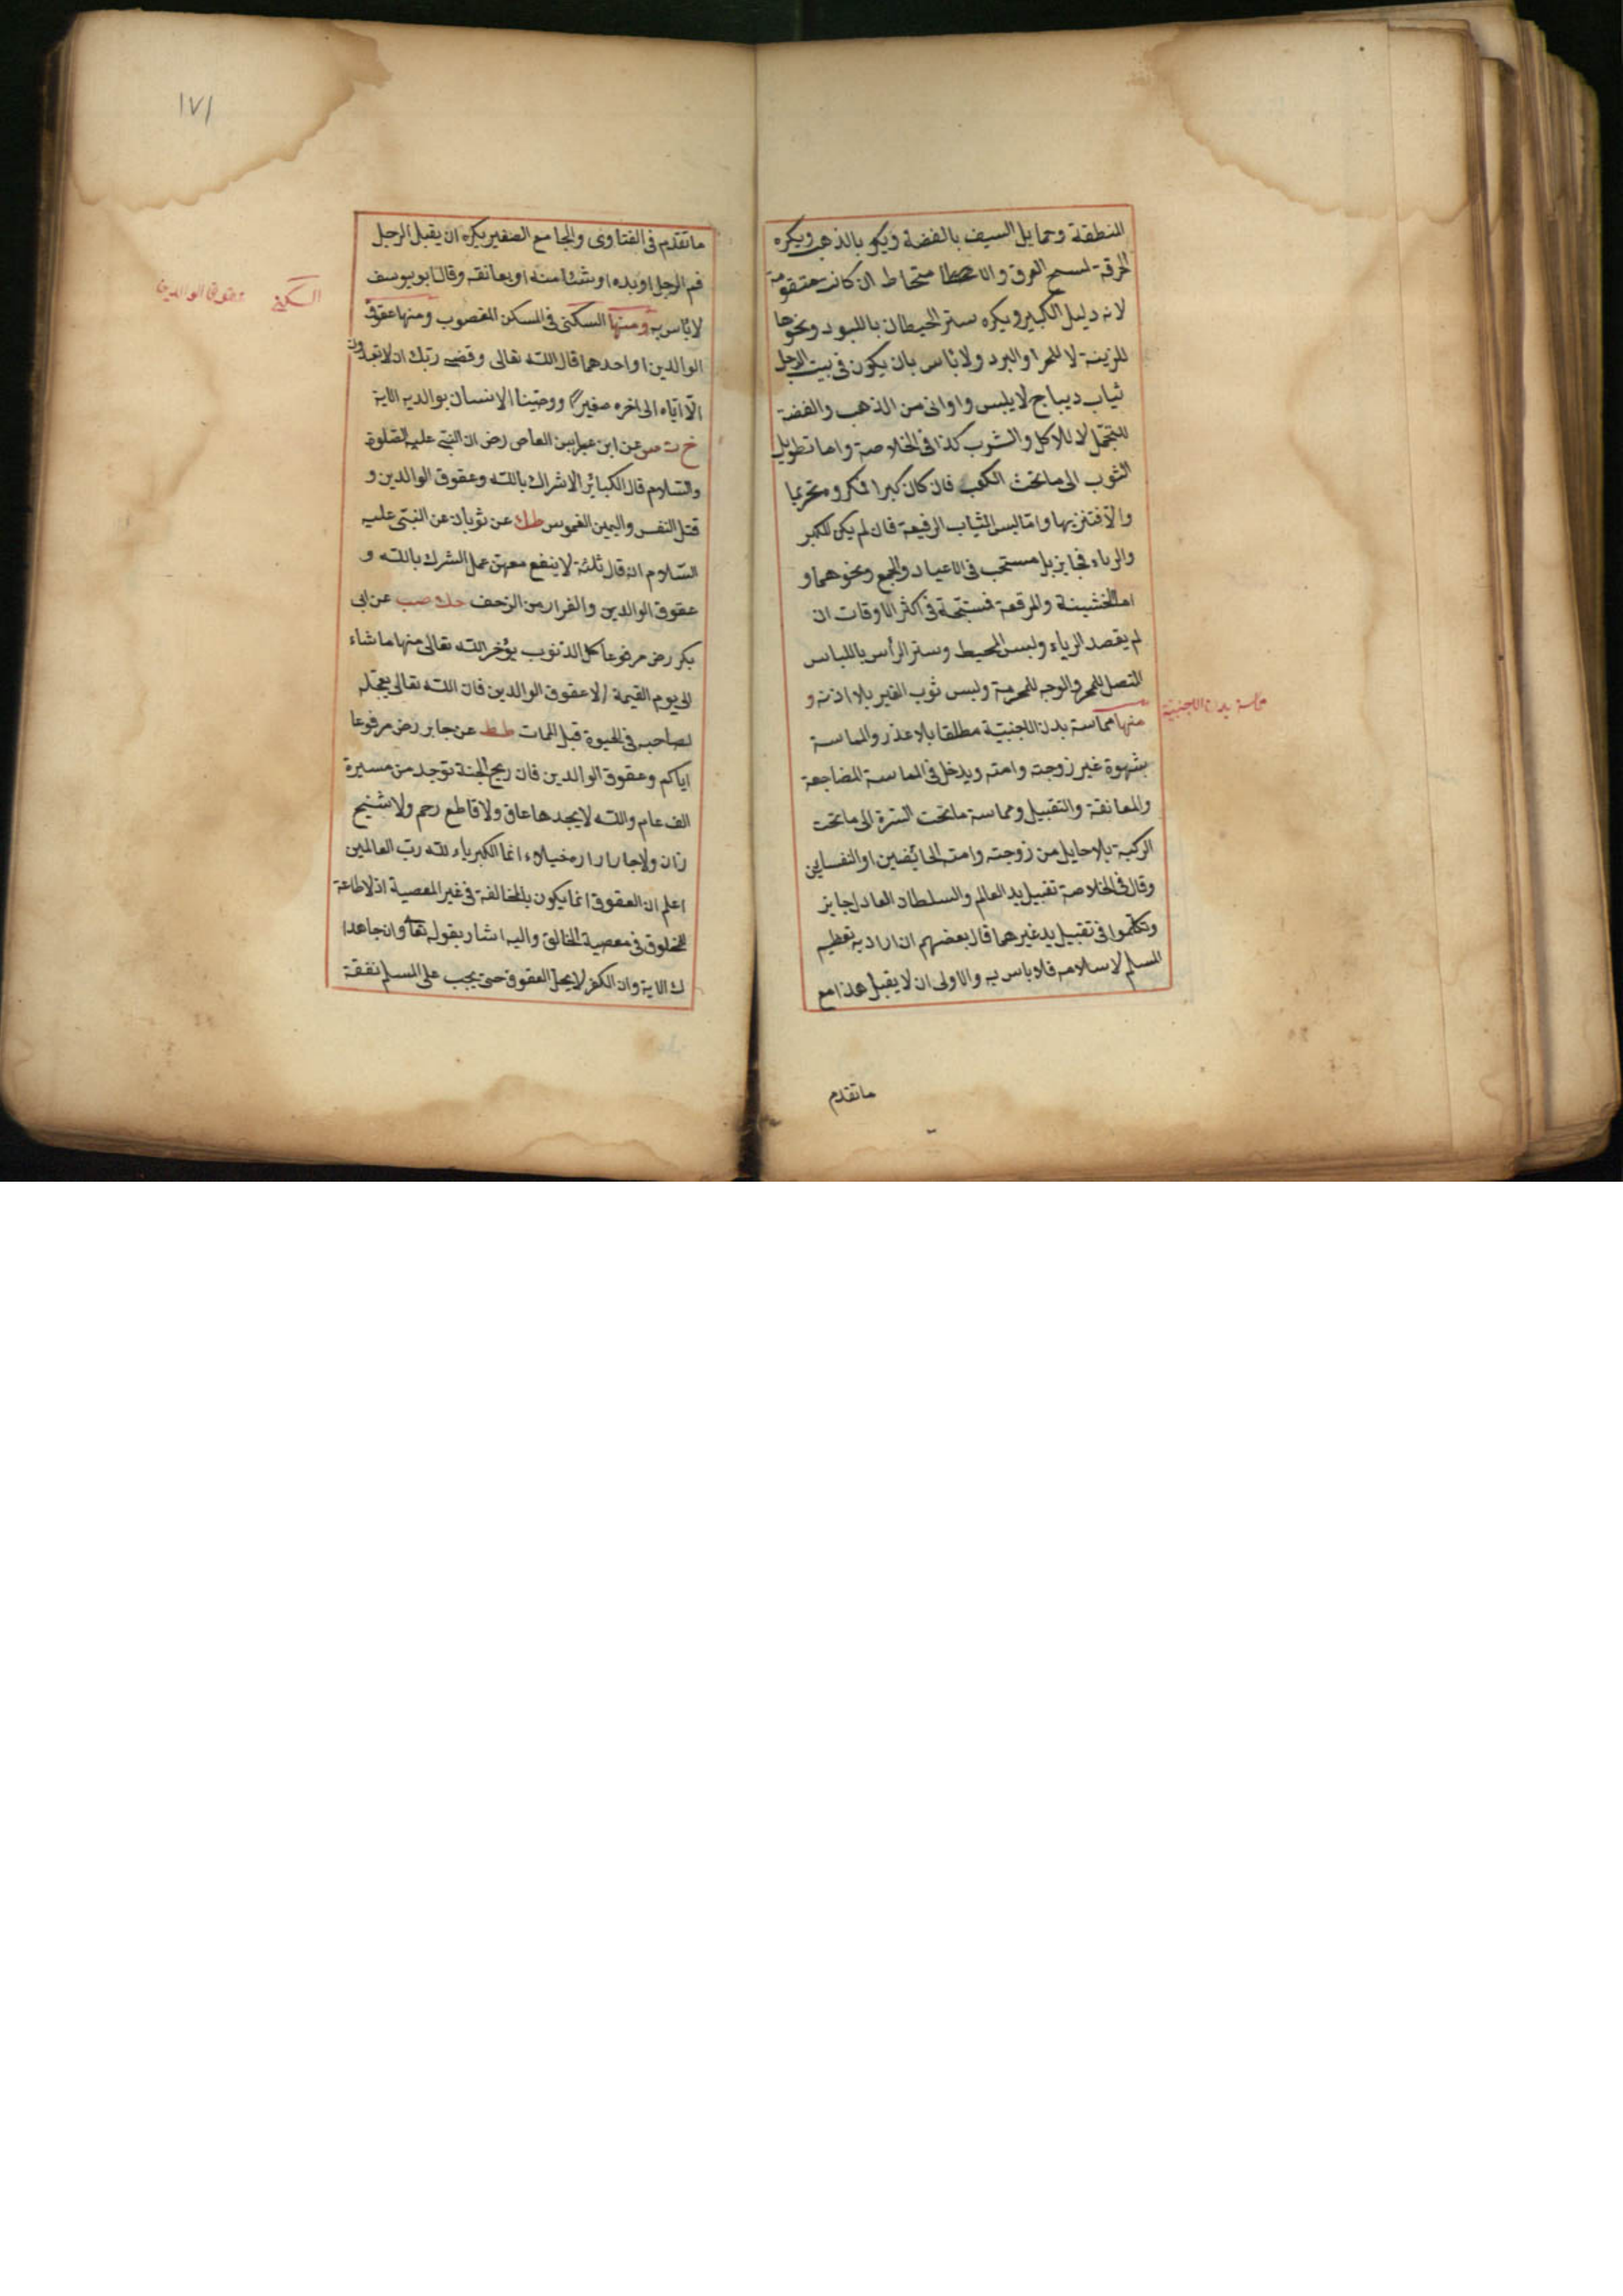 المنطقة وحمايل السيف بالفضة ويكره بالذهب ويكره
الخرقة لمسح العرق والامتخاط ان كانت متقومة
لانه دليل الكبر ويكره ستر الحيطان باللبود ونحوها
للزينة لا للحر او البرد ولا بأس بان يكون فى بيت الرجل
ثياب ديباج لا يلبس واوانى من الذهب والفضة
للتجمل لا للاكل والشرب كذا فى الخلاصة واما تطويل
الثوب الى ما تحت الكعب فان كان كبرا فمكروه تحريما
والا فتنزيها واما لبس الثياب الرفيعة فان لم يكن للكبر
والرياء فجايز بل مستحب فى الاعياد والجمع ونحوهما و
اما الخشينة والمرقعة فمستحبة فى اكثر الاوقات ان
لم يقصد الرياء ولبس المخيط وستر الرأس باللباس
المتصل للمحرم والوجه للمحرمة ولبس ثوب الغير بلا اذنه و
منها مماسة بدن الاجنبية مطلقا بلا عذر والمماسة
مماسة بدن الاجنبية
بشهوة غير زوجته وامته ويدخل فى المماسة المضاجعة
والمعانقة والتقبيل ومماسة ما تحت السترة الى ما تحت
الركبة بلا حايل من زوجته وامته الحائضين او النفسايين
وقال فى الخلاصة تقبيل يد العالم والسلطان العادل جايز
وتكلموا فى تقبيل يد غيرهما قال بعضهم ان اراد به تعظيم
المسلم لاسلامه فلا باس به والاولى ان لا يقبل هذا مع
ما تقدم
١٧١
ما تقدم فى الفتاوى والجامع الصغير يكره ان يقبل الرجل
فم الرجل او يده او شيئا منه او يعانقه وقال ابو يوسف
السكنى عقوق الوالدين
لا بأس به ومنها السكنى فى المسكن المغصوب ومنها عقوق
الوالدين او احدهما قال الله تعالى وقضى ربك ان لا تعبدون
الا اياه الى اخره صغيرا ووصينا الانسان بوالديه الاية
خ ت س عن ابن عمرو بن العاص رض ان النبى عليه الصلوة
والسلام قال الكبائر الاشراك بالله وعقوق الوالدين و
قتل النفس واليمين الغموس طك عن ثوبان عن النبى عليه
السلام انه قال ثلثة لا ينفع معهن عمل الشرك بالله و
عقوق الوالدين والفرار من الزحف حك صب عن ابى
بكر رض مرفوعا كل الذنوب يؤخر الله تعالى منها ما شاء
الى يوم القيمة الا عقوق الوالدين فان الله تعالى يعجله
لصاحبه فى الحيوة قبل الممات طط عن جابر رض مرفوعا
اياكم وعقوق الوالدين فان ريح الجنة توجد من مسيرة
الف عام والله لا يجدها عاق ولا قاطع رحم ولا شيخ
زان ولا جار ازاره خيلاء انما الكبرياء لله رب العالمين
اعلم ان العقوق انما يكون بالمخالفة فى غير المعصية اذ لا طاعة
للمخلوق فى معصية الخالق واليه اشار بقوله تعا وان جاهدا
ك الاية وان الكفر لا يحل العقوق حتى يجب على المسلم نفقة